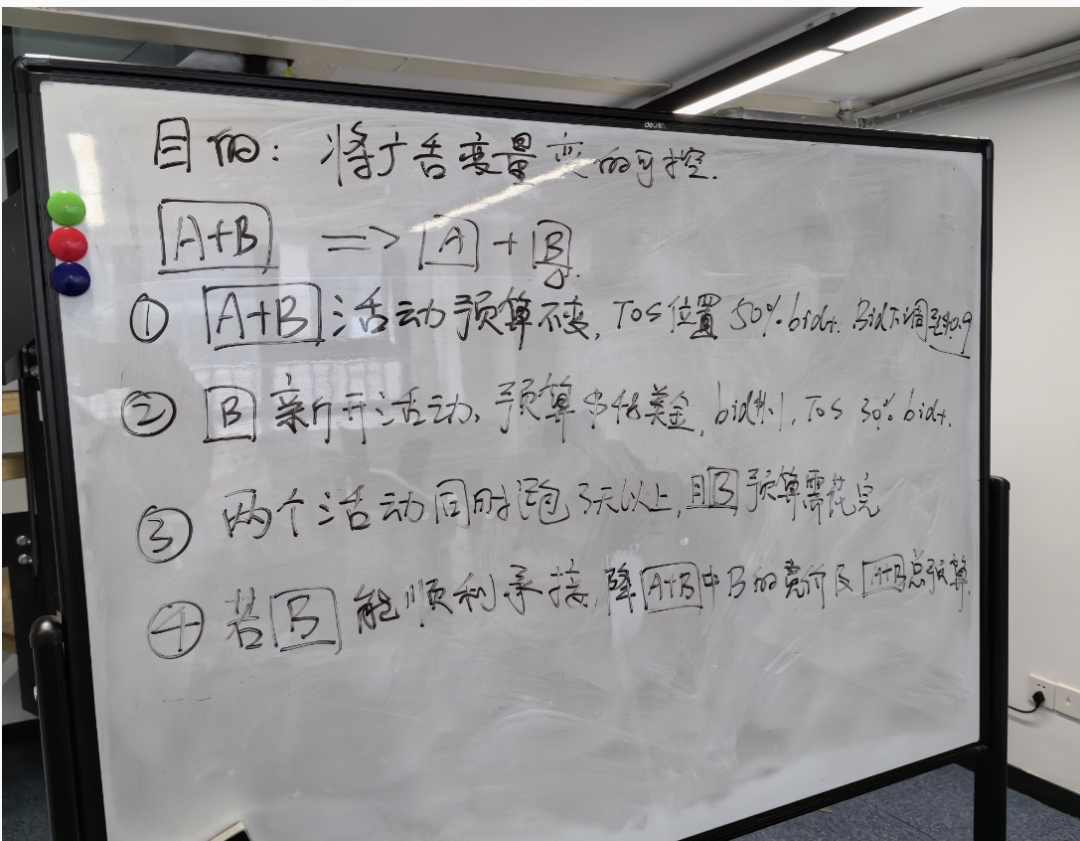 deli
目的: 将广告变量变的可控.
A+B => A + B
① A+B 活动预算不变, TOS 位置 50% bid+. Bid下调至$0.9
② B 新开活动, 预算 $ 美金, bid $1, TOS 30% bid+.
③ 两个活动同时跑 3天以上, 且 B 预算需花完
④ 若 B 能顺利承接, 降 A+B 中 B 的竞价及 A+B 总预算.